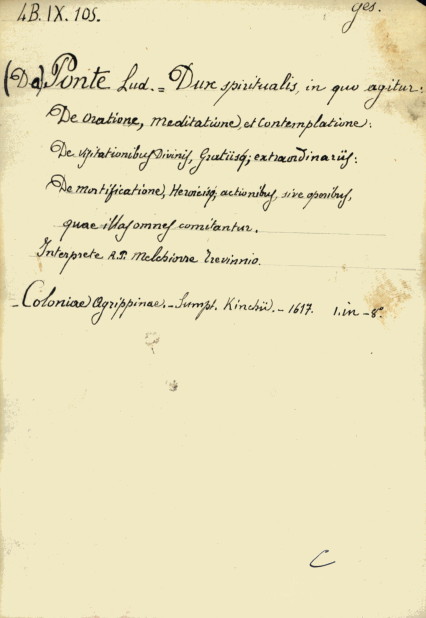 4B. IX. 105.
ges.
(Da) Ponte Lud. = Dux spiritualis, in quo agitur:
De oratione, meditatione, et contemplatione:
De visitationibus Divinis, Gratiisq; extraordinariis:
De mortificatione, Heroicisq; actionibus, sive operibus,
quae illas omnes comitantur.
Interprete R.P. Melchiorre Trevinnio.
- Coloniae Agrippinae. - Sumpt. Kinchii. - 1617. 1. in - 8°
C